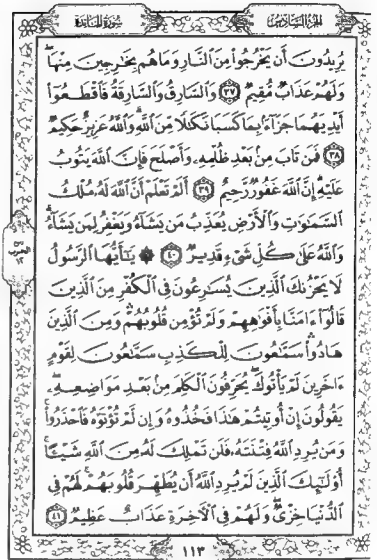 الجزء السادس
سورة المائدة
يُرِيدُونَ أَن يَخْرُجُوا۟ مِنَ ٱلنَّارِ وَمَا هُم بِخَٰرِجِينَ مِنْهَا ۖ
وَلَهُمْ عَذَابٌ مُّقِيمٌ ٣٧ وَٱلسَّارِقُ وَٱلسَّارِقَةُ فَٱقْطَعُوٓا۟
أَيْدِيَهُمَا جَزَآءًۢ بِمَا كَسَبَا نَكَٰلًا مِّنَ ٱللَّهِ ۗ وَٱللَّهُ عَزِيزٌ حَكِيمٌ
٣٨ فَمَن تَابَ مِنۢ بَعْدِ ظُلْمِهِۦ وَأَصْلَحَ فَإِنَّ ٱللَّهَ يَتُوبُ
عَلَيْهِ ۗ إِنَّ ٱللَّهَ غَفُورٌ رَّحِيمٌ ٣٩ أَلَمْ تَعْلَمْ أَنَّ ٱللَّهَ لَهُۥ مُلْكُ
ٱلسَّمَٰوَٰتِ وَٱلْأَرْضِ يُعَذِّبُ مَن يَشَآءُ وَيَغْفِرُ لِمَن يَشَآءُ ۗ
وَٱللَّهُ عَلَىٰ كُلِّ شَىْءٍ قَدِيرٌ ٤٠ ۞ يَٰٓأَيُّهَا ٱلرَّسُولُ
لَا يَحْزُنكَ ٱلَّذِينَ يُسَٰرِعُونَ فِى ٱلْكُفْرِ مِنَ ٱلَّذِينَ
قَالُوٓا۟ ءَامَنَّا بِأَفْوَٰهِهِمْ وَلَمْ تُؤْمِن قُلُوبُهُمْ ۛ وَمِنَ ٱلَّذِينَ
هَادُوا۟ ۛ سَمَّٰعُونَ لِلْكَذِبِ سَمَّٰعُونَ لِقَوْمٍ
ءَاخَرِينَ لَمْ يَأْتُوكَ ۖ يُحَرِّفُونَ ٱلْكَلِمَ مِنۢ بَعْدِ مَوَاضِعِهِۦ ۖ
يَقُولُونَ إِنْ أُوتِيتُمْ هَٰذَا فَخُذُوهُ وَإِن لَّمْ تُؤْتَوْهُ فَٱحْذَرُوا۟ ۚ
وَمَن يُرِدِ ٱللَّهُ فِتْنَتَهُۥ فَلَن تَمْلِكَ لَهُۥ مِنَ ٱللَّهِ شَيْـًٔا ۚ
أُو۟لَٰٓئِكَ ٱلَّذِينَ لَمْ يُرِدِ ٱللَّهُ أَن يُطَهِّرَ قُلُوبَهُمْ ۚ لَهُمْ فِى
ٱلدُّنْيَا خِزْىٌ ۖ وَلَهُمْ فِى ٱلْءَاخِرَةِ عَذَابٌ عَظِيمٌ ٤١
١١٣